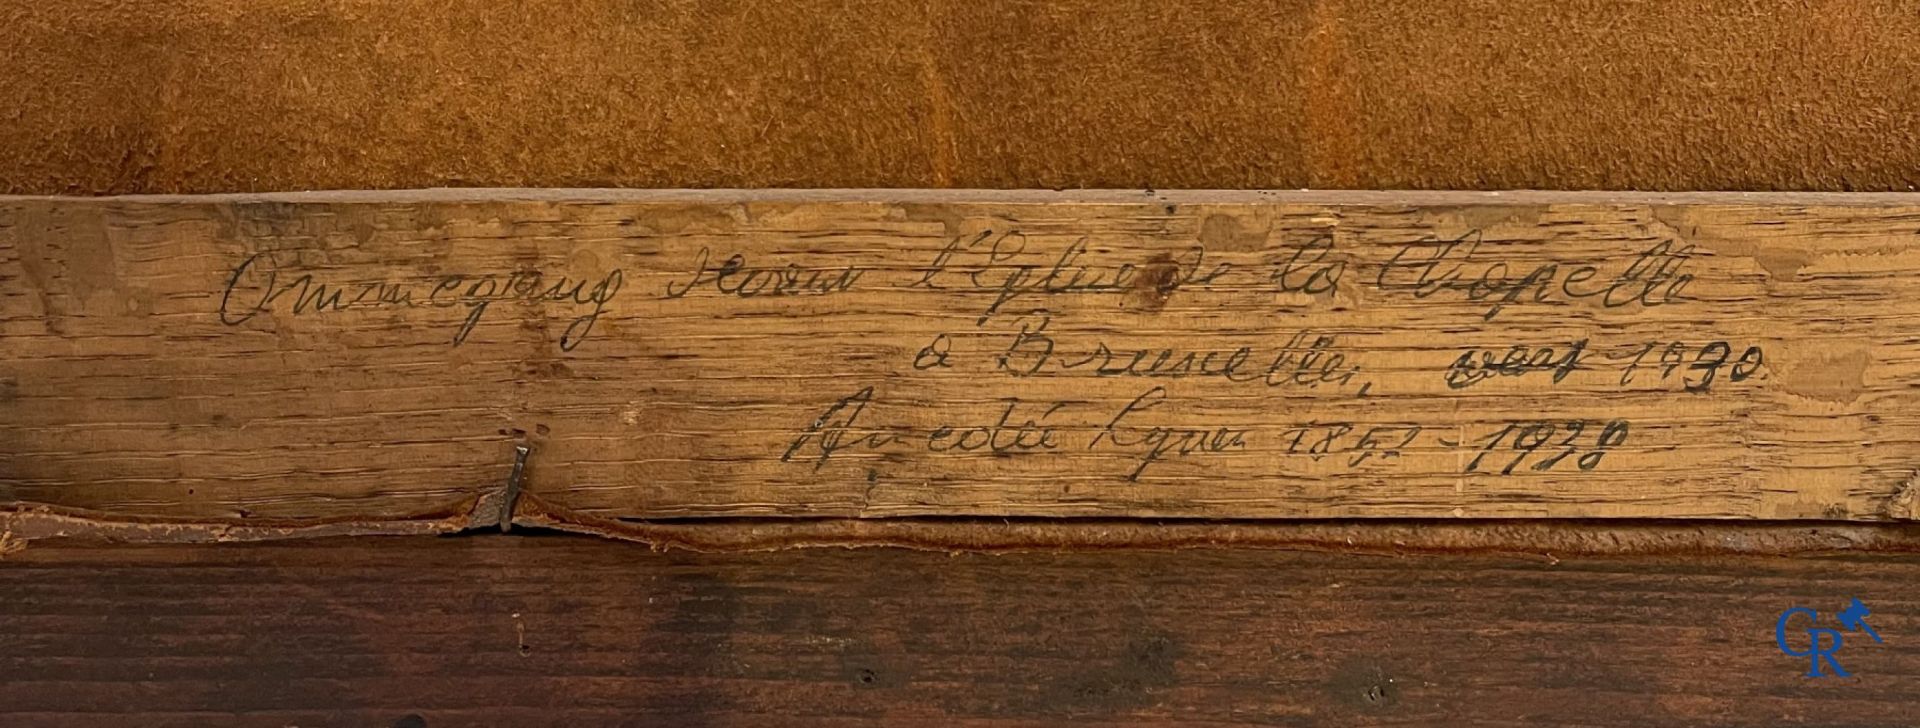 Ommegang devant l'Eglise de la Chapelle
à Bruxelles, vers 1930.
Amedée Lynen 1852-1938
CR